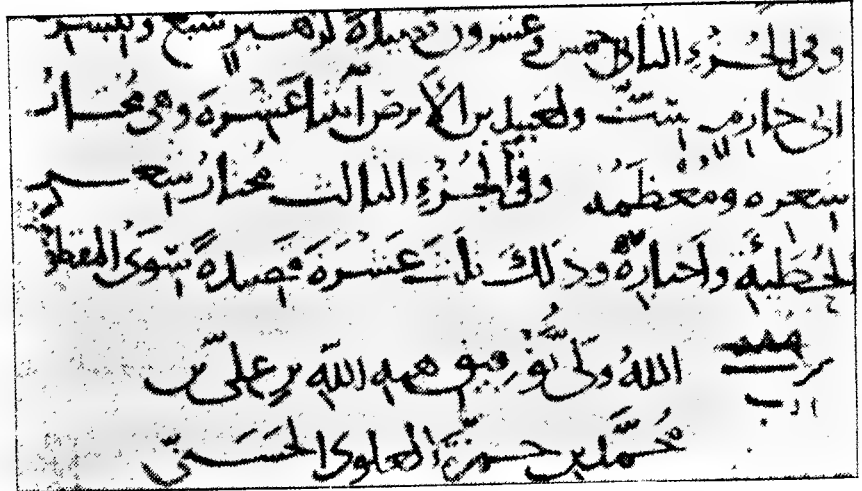 وفى الجُزءِ الثانى خمس وعشرون قصيدةً لزهيرٍ سَبعٌ ولبشر
ابى خازم ستٌّ ولعبيد بن الأَبرص اثنتا عَشْرَةَ وهى مُختارُ
شعره ومُعْظَمُه وفى الجُزءِ الثالث مُختارُ شعر
الحُطَيْئَةِ وأخبارُهُ وذلكَ ثلثَ عَشْرَةَ قصيدةً سِوَى
اللهُ ولىُّ توفيق هبه اللهِ بن على بن
مُحمَّد بن حمزة العلوى الحَسَنىّ